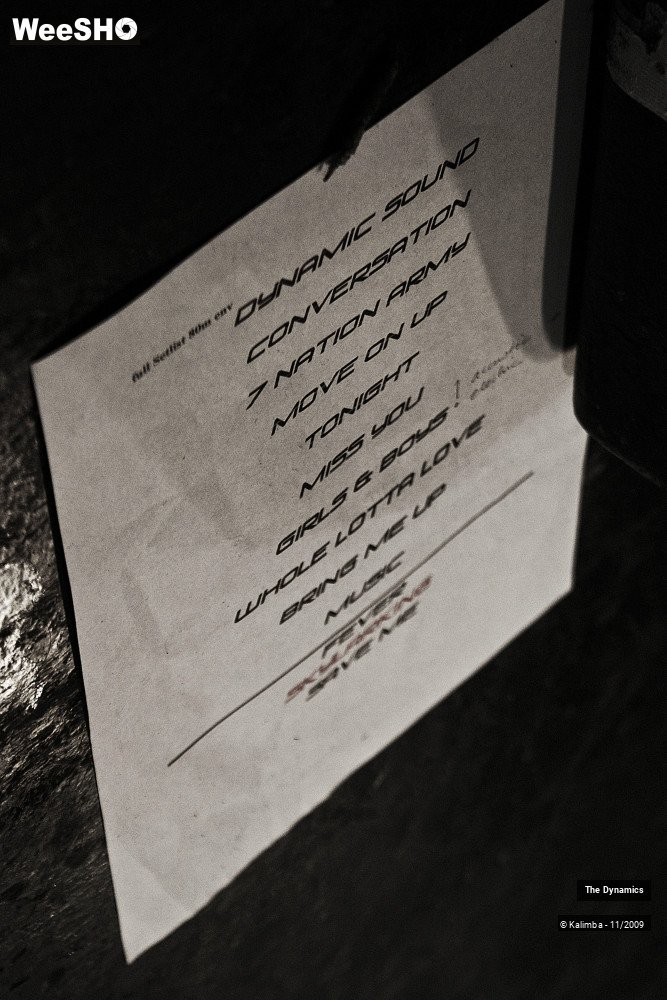 WeeSHO
full Setlist 80m env
DYNAMIC SOUND
CONVERSATION
7 NATION ARMY
MOVE ON UP
TONIGHT
MISS YOU
GIRLS & BOYS !
acoustic
WHOLE LOTTA LOVE
BRING ME UP
MUSIC
FEVER
SKYLARKING
SAVE ME
The Dynamics
© Kalimba - 11/2009